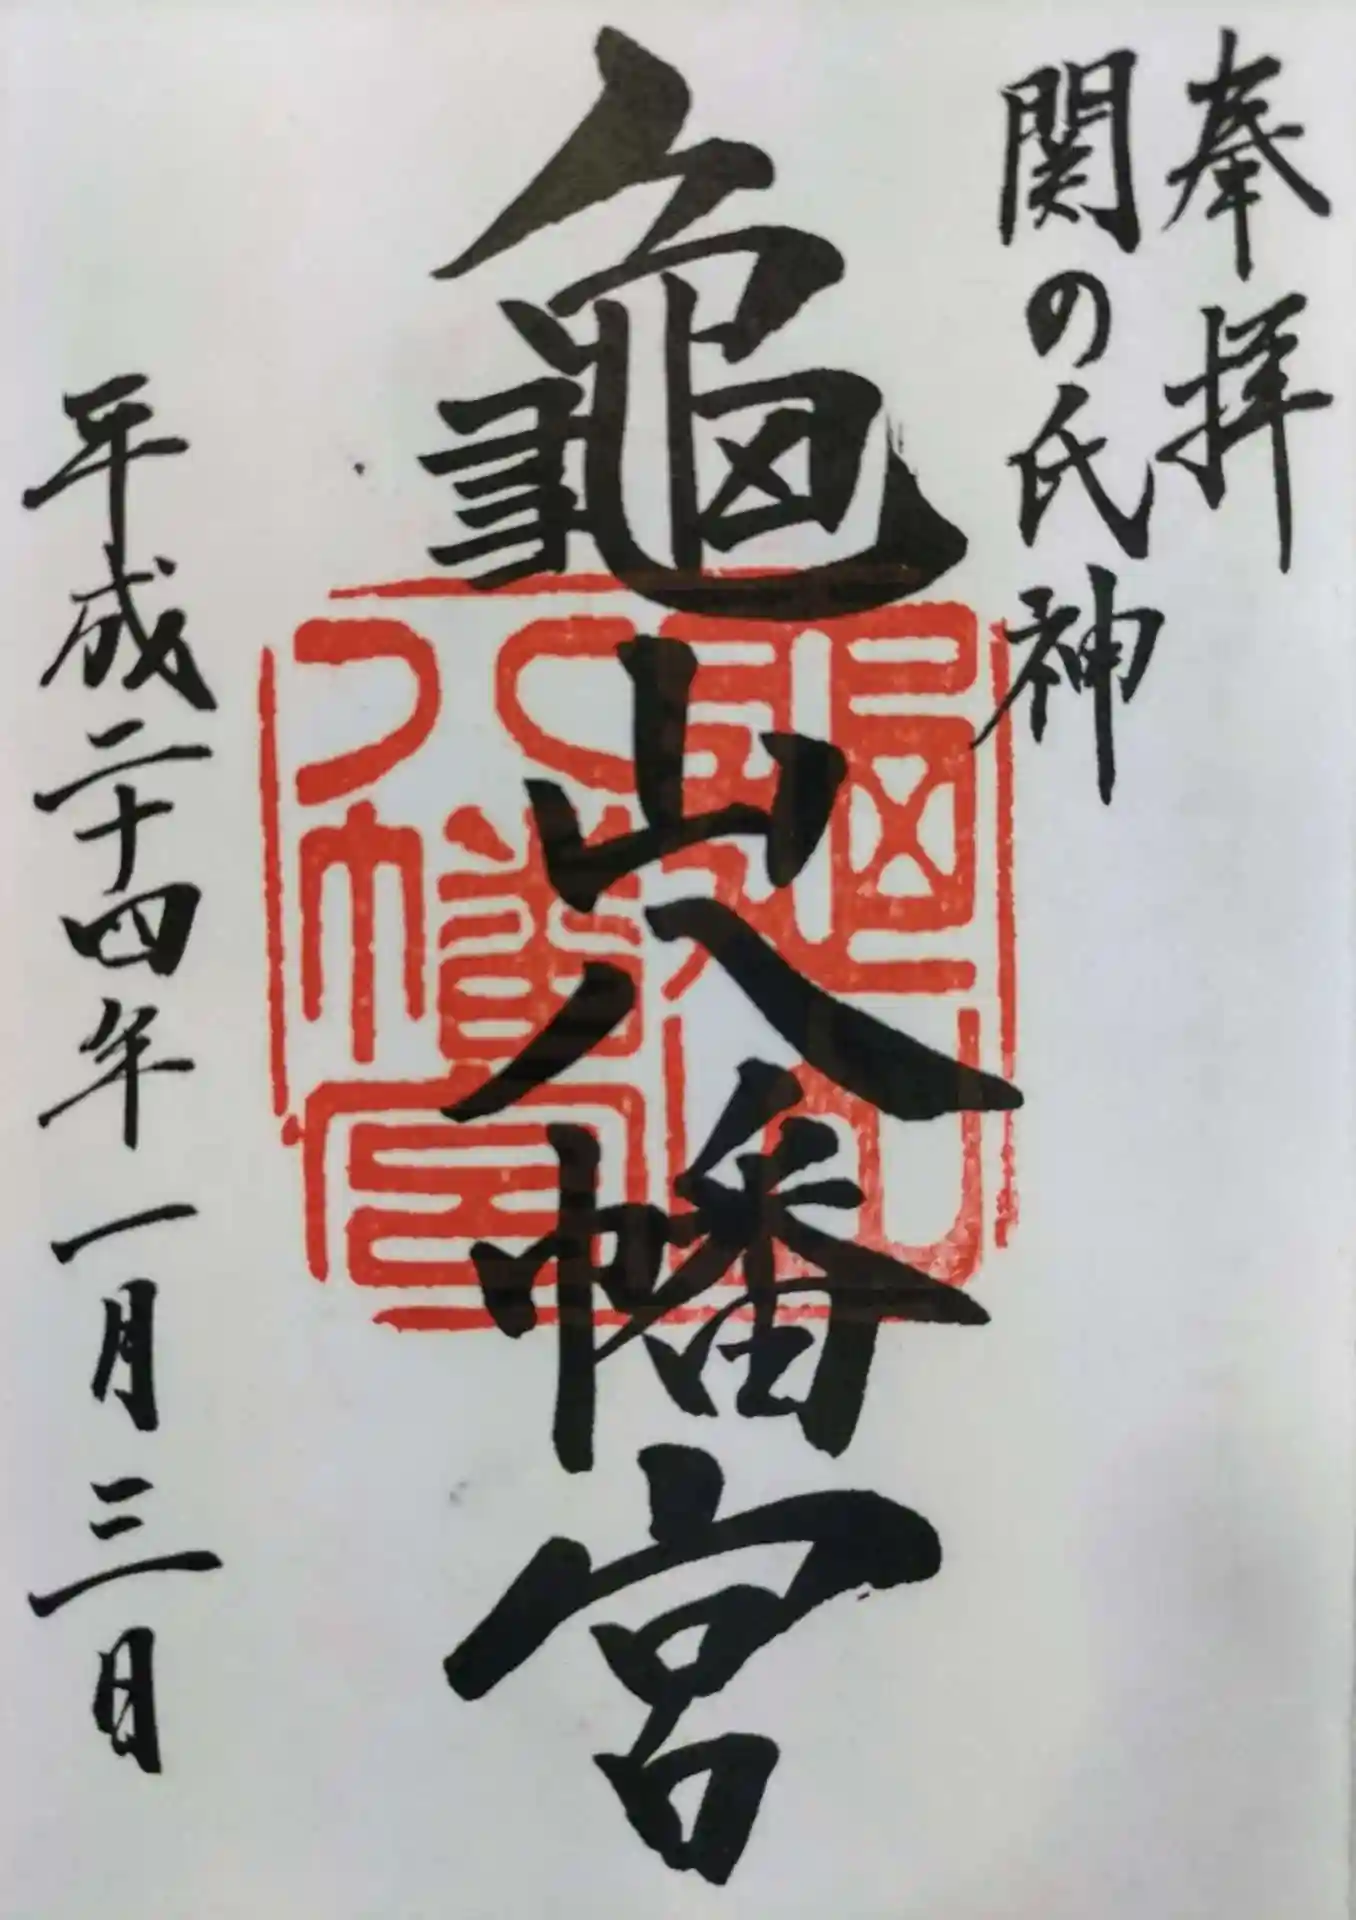 奉拝
関の氏神
龜山八幡宮
龜山八幡宮
平成二十四年一月三日